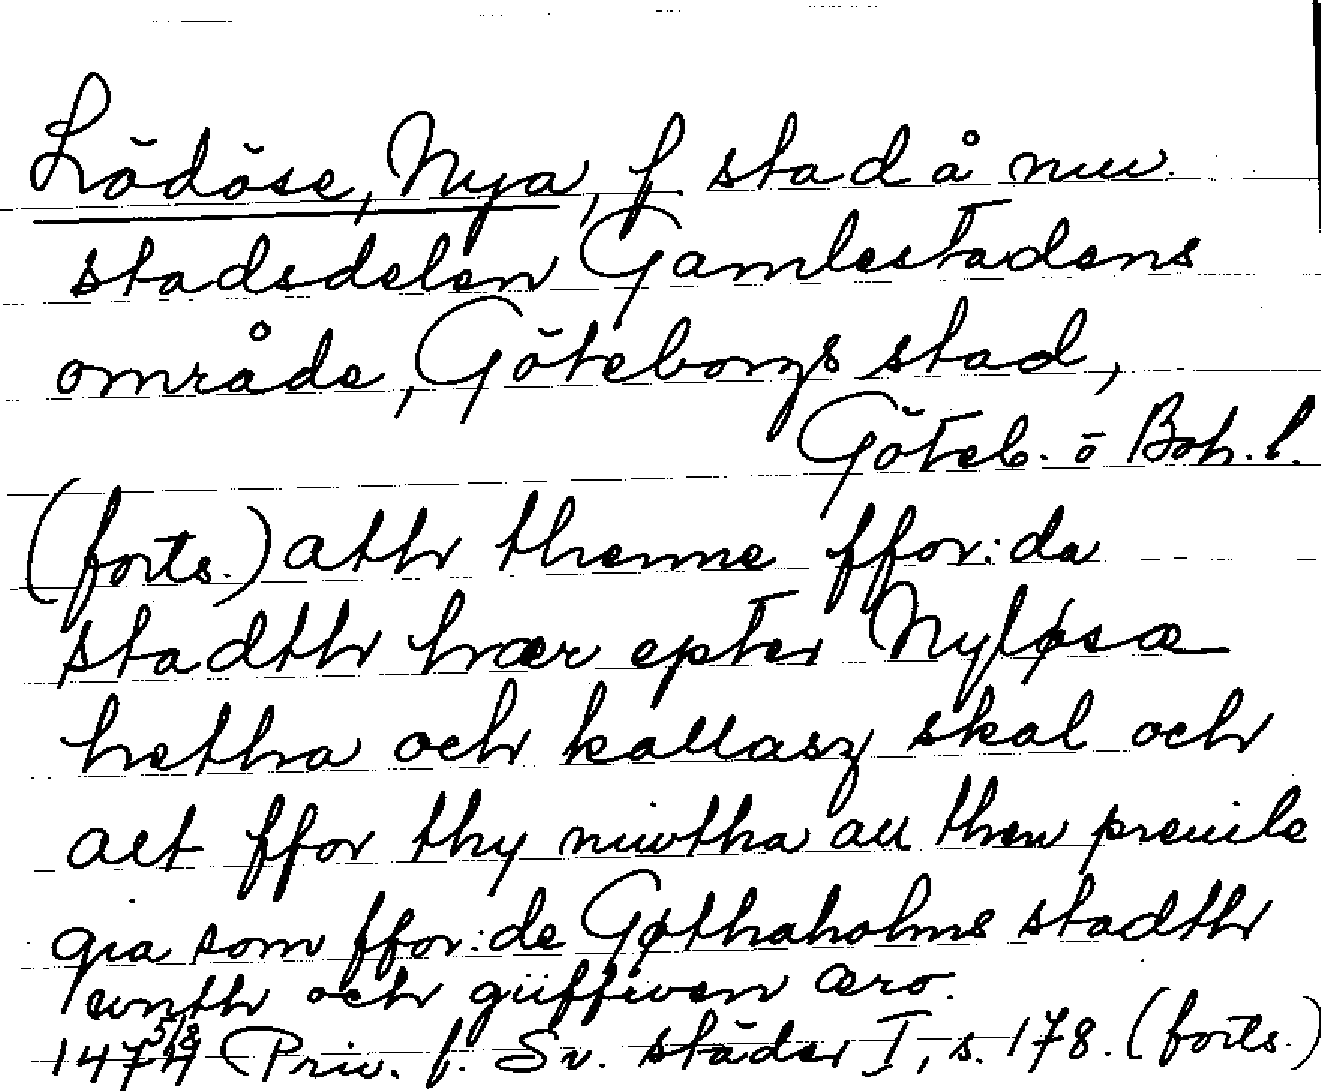 Lödöse, Nya, f. stad å nuv.
stadsdelen Gamlestadens
område, Göteborgs stad,
Göteb. o Boh. l.
(forts.) ath thenne ffor:da
stadth hær epter Nyløsæ
hetha och kallasz skal och
alt ffor thy niwtha all then preuile
gia som ffor:de Gøthaholms stadth
wnth och giiffwen æro.
5/8
1474 Priv. f. Sv. städer I, s. 178. (forts.)